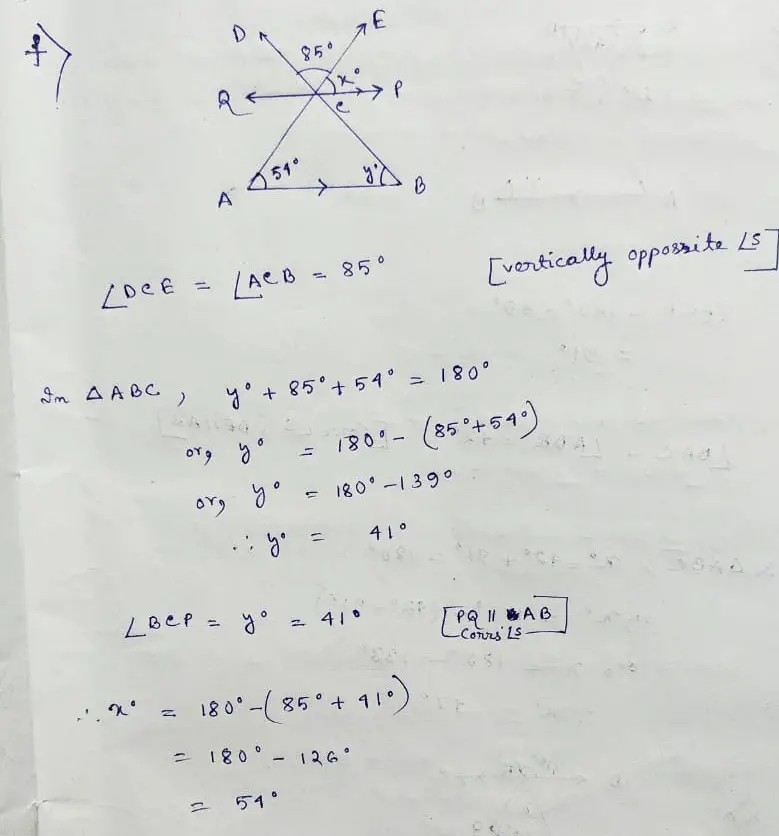 f)
D E
85°
x°
Q P
C
54° y°
A B
∠DCE = ∠ACB = 85° [vertically oppossite ∠S]
In △ABC, y° + 85° + 54° = 180°
or, y° = 180° - (85° + 54°)
or, y° = 180° - 139°
∴ y° = 41°
∠BCP = y° = 41° [PQ || AB
Corrs ∠s]
∴ x° = 180° - (85° + 41°)
= 180° - 126°
= 54°